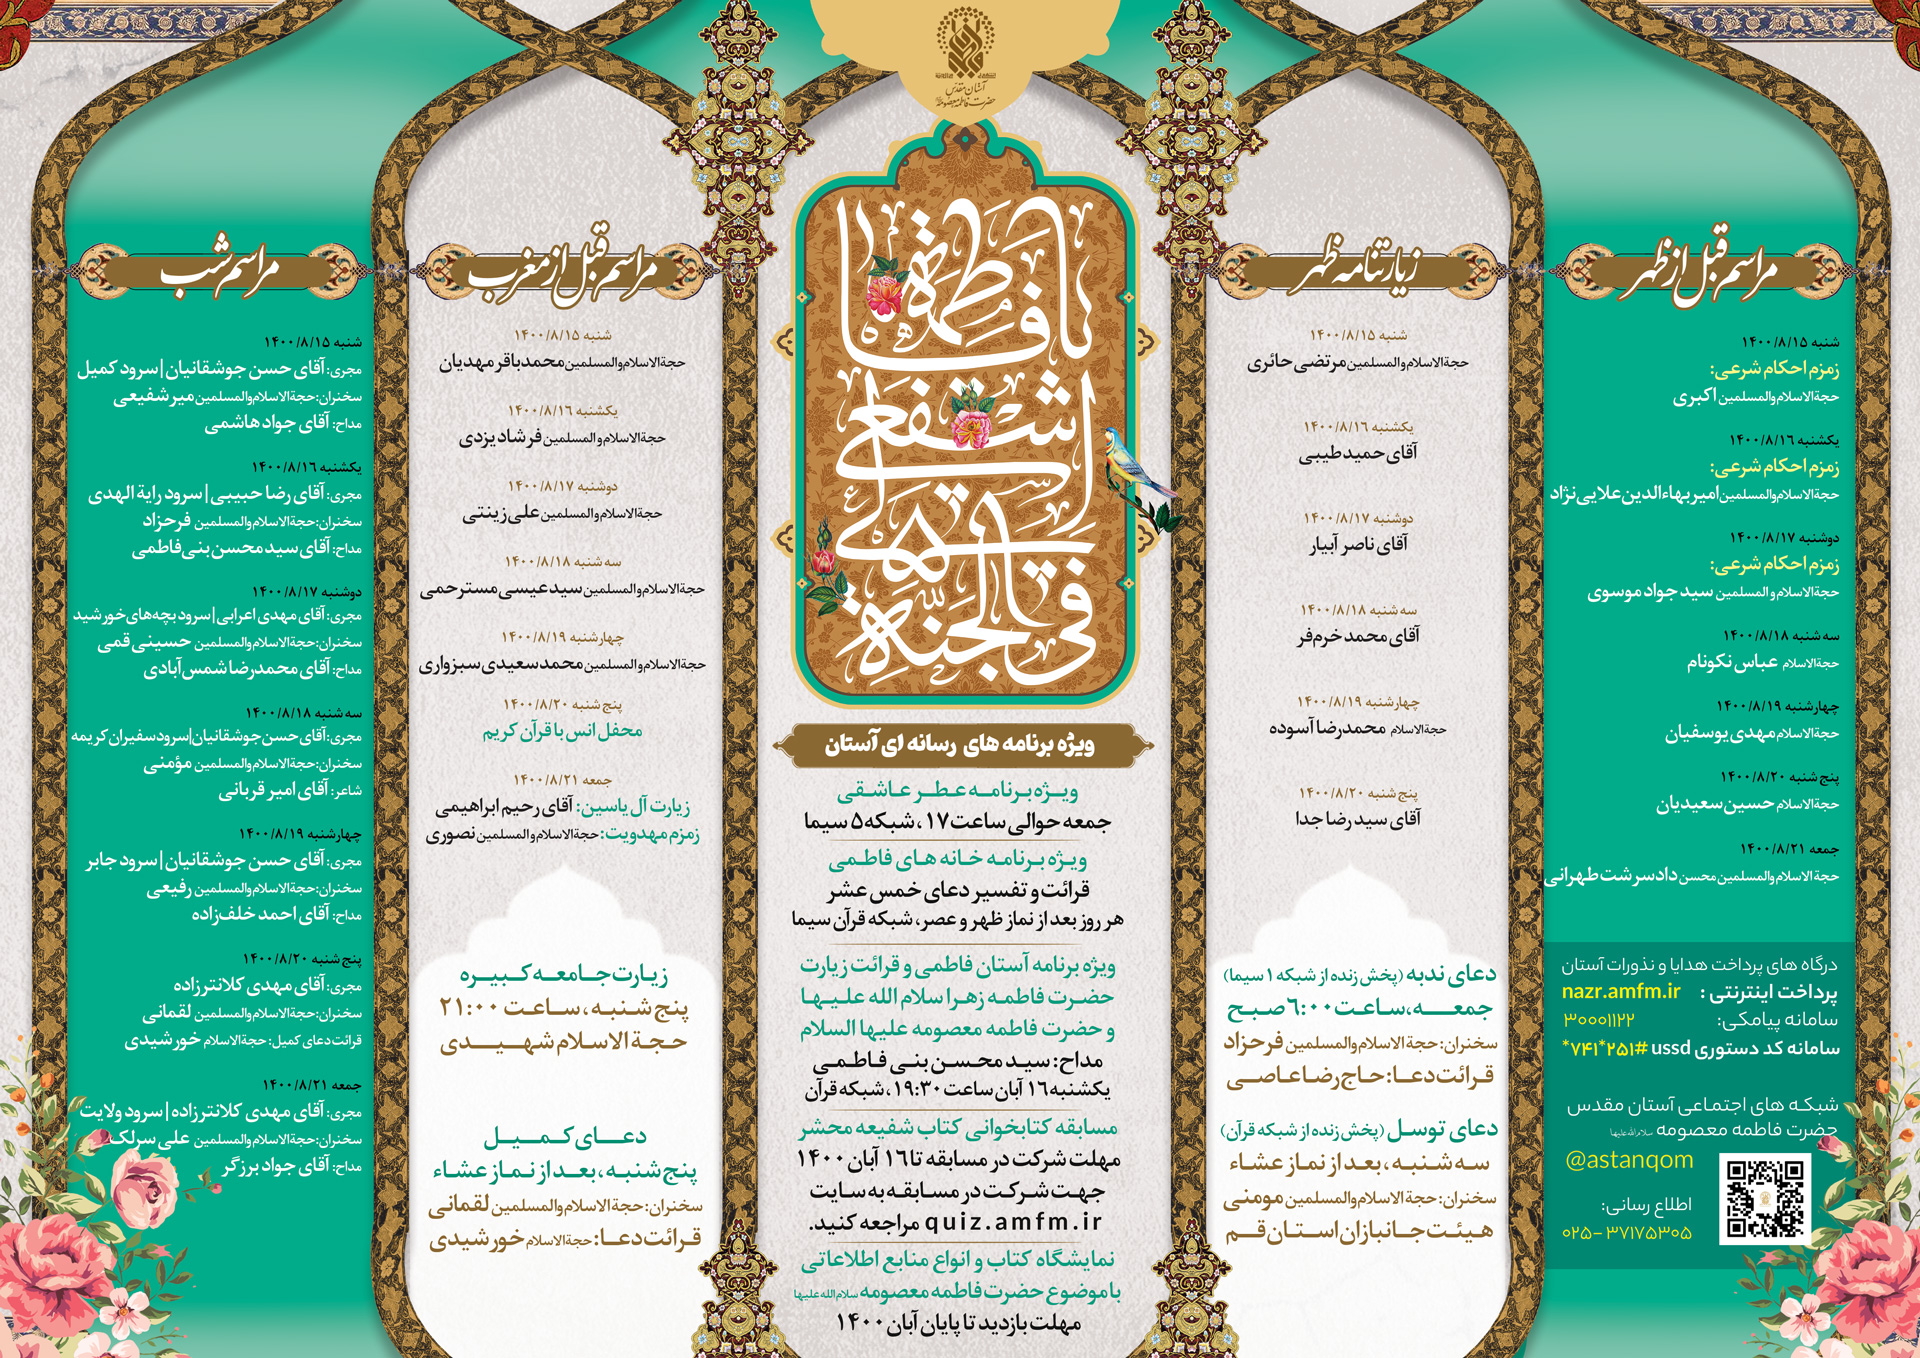 آستان مقدس
حضرت فاطمه معصومه
یا فاطمة
اشفعی لی
فی الجنة
مراسم قبل از ظهر
شنبه ۱۴۰۰/۸/۱۵
زمزم احکام شرعی:
حجةالاسلام‌والمسلمین اکبری
یکشنبه ۱۴۰۰/۸/۱۶
زمزم احکام شرعی:
حجةالاسلام‌والمسلمین امیر بهاءالدین علایی نژاد
دوشنبه ۱۴۰۰/۸/۱۷
زمزم احکام شرعی:
حجةالاسلام‌و المسلمین سید جواد موسوی
سه شنبه ۱۴۰۰/۸/۱۸
حجةالاسلام عباس نکونام
چهارشنبه ۱۴۰۰/۸/۱۹
حجةالاسلام مهدی یوسفیان
پنج شنبه ۱۴۰۰/۸/۲۰
حجةالاسلام حسین سعیدیان
جمعه ۱۴۰۰/۸/۲۱
حجة الاسلام‌والمسلمین محسن دادسرشت طهرانی
درگاه های پرداخت هدایا و نذورات آستان
پرداخت اینترنتی : nazr.amfm.ir
سامانه پیامکی: ۳۰۰۰۱۱۲۲
سامانه کد دستوری ussd *۷۴۱*۲۵۱#
شبکه های اجتماعی آستان مقدس
حضرت فاطمه معصومه سلام‌الله‌علیها
@astanqom
اطلاع رسانی:
۰۲۵- ۳۷۱۷۵۳۰۵
زیارتنامه ظهر
شنبه ۱۴۰۰/۸/۱۵
حجةالاسلام‌والمسلمین مرتضی حائری
یکشنبه ۱۴۰۰/۸/۱۶
آقای حمید طیبی
دوشنبه ۱۴۰۰/۸/۱۷
آقای ناصر آبیار
سه شنبه ۱۴۰۰/۸/۱۸
آقای محمد خرم‌فر
چهارشنبه ۱۴۰۰/۸/۱۹
حجةالاسلام محمدرضا آسوده
پنج شنبه ۱۴۰۰/۸/۲۰
آقای سید رضا جدا
دعای ندبه (پخش زنده از شبکه ۱ سیما)
جمعه، ساعت ۶:۰۰ صبح
سخنران: حجة الاسلام‌والمسلمین فرحزاد
قرائت دعا: حاج رضا عاصی
دعای توسل (پخش زنده از شبکه قرآن)
سه شنبه، بعد از نماز عشاء
سخنران: حجة الاسلام‌والمسلمین مومنی
هیئت جانبازان استان قم
ویژه برنامه های رسانه ای آستان
ویژه برنامه عطر عاشقی
جمعه حوالی ساعت ۱۷ ، شبکه ۵ سیما
ویژه برنامه خانه های فاطمی
قرائت و تفسیر دعای خمس عشر
هر روز بعد از نماز ظهر و عصر، شبکه قرآن سیما
ویژه برنامه آستان فاطمی و قرائت زیارت
حضرت فاطمه زهرا سلام الله علیها
و حضرت فاطمه معصومه علیها السلام
مداح: سید محسن بنی فاطمی
یکشنبه ۱۶ آبان ساعت ۱۹:۳۰ ، شبکه قرآن
مسابقه کتابخوانی کتاب شفیعه محشر
مهلت شرکت در مسابقه تا ۱۶ آبان ۱۴۰۰
جهت شرکت در مسابقه به سایت
quiz.amfm.ir مراجعه کنید.
نمایشگاه کتاب و انواع منابع اطلاعاتی
با موضوع حضرت فاطمه معصومه سلام‌الله‌علیها
مهلت بازدید تا پایان آبان ۱۴۰۰
مراسم قبل از مغرب
شنبه ۱۴۰۰/۸/۱۵
حجةالاسلام‌والمسلمین محمدباقر مهدیان
یکشنبه ۱۴۰۰/۸/۱۶
حجةالاسلام‌والمسلمین فرشاد یزدی
دوشنبه ۱۴۰۰/۸/۱۷
حجةالاسلام‌والمسلمین علی زینتی
سه شنبه ۱۴۰۰/۸/۱۸
حجةالاسلام‌والمسلمین سید عیسی مسترحمی
چهارشنبه ۱۴۰۰/۸/۱۹
حجةالاسلام‌والمسلمین محمد سعیدی سبزواری
پنج شنبه ۱۴۰۰/۸/۲۰
محفل انس با قرآن کریم
جمعه ۱۴۰۰/۸/۲۱
زیارت آل یاسین: آقای رحیم ابراهیمی
زمزم مهدویت: حجةالاسلام‌والمسلمین نصوری
زیارت جامعه کبیره
پنج شنبه، ساعت ۲۱:۰۰
حجة الاسلام شهیدی
دعای کمیل
پنج شنبه، بعد از نماز عشاء
سخنران: حجةالاسلام‌والمسلمین لقمانی
قرائت دعا: حجةالاسلام خورشیدی
مراسم شب
شنبه ۱۴۰۰/۸/۱۵
مجری: آقای حسن جوشقانیان | سرود کمیل
سخنران: حجةالاسلام‌والمسلمین میر شفیعی
مداح: آقای جواد هاشمی
یکشنبه ۱۴۰۰/۸/۱۶
مجری: آقای رضا حبیبی | سرود رایة الهدی
سخنران: حجةالاسلام‌والمسلمین فرحزاد
مداح: آقای سید محسن بنی‌فاطمی
دوشنبه ۱۴۰۰/۸/۱۷
مجری: آقای مهدی اعرابی | سرود بچه‌های خورشید
سخنران: حجةالاسلام‌والمسلمین حسینی قمی
مداح: آقای محمدرضا شمس‌آبادی
سه شنبه ۱۴۰۰/۸/۱۸
مجری: آقای حسن جوشقانیان|سرود سفیران کریمه
سخنران: حجةالاسلام‌والمسلمین مؤمنی
شاعر: آقای امیر قربانی
چهارشنبه ۱۴۰۰/۸/۱۹
مجری: آقای حسن جوشقانیان | سرود جابر
سخنران: حجةالاسلام‌والمسلمین رفیعی
مداح: آقای احمد خلف‌زاده
پنج شنبه ۱۴۰۰/۸/۲۰
مجری: آقای مهدی کلانترزاده
سخنران: حجةالاسلام‌والمسلمین لقمانی
قرائت دعای کمیل: حجةالاسلام خورشیدی
جمعه ۱۴۰۰/۸/۲۱
مجری: آقای مهدی کلانترزاده | سرود ولایت
سخنران: حجةالاسلام‌والمسلمین علی سرلک
مداح: آقای جواد برزگر